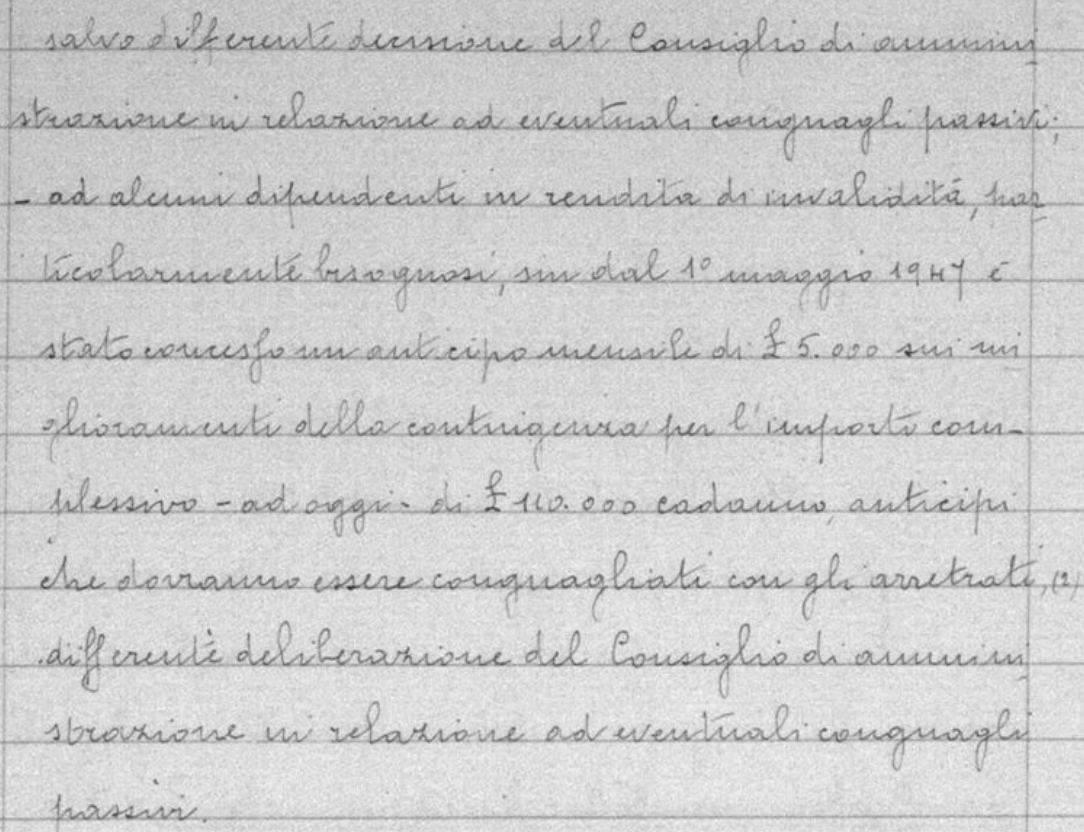 salvo differente decisione del Consiglio di ammini
strazione in relazione ad eventuali conguagli passivi;
- ad alcuni dipendenti in rendita di invalidità, par
ticolarmente bisognosi, sin dal 1° maggio 1947 è
stato concesso un anticipo mensile di £ 5.000 sui mi
glioramenti della contingenza per l'importo com-
plessivo - ad oggi - di £ 110.000 cadauno, anticipi
che dovranno essere conguagliati con gli arretrati, (2)
differente deliberazione del Consiglio di ammini
strazione in relazione ad eventuali conguagli
passivi.